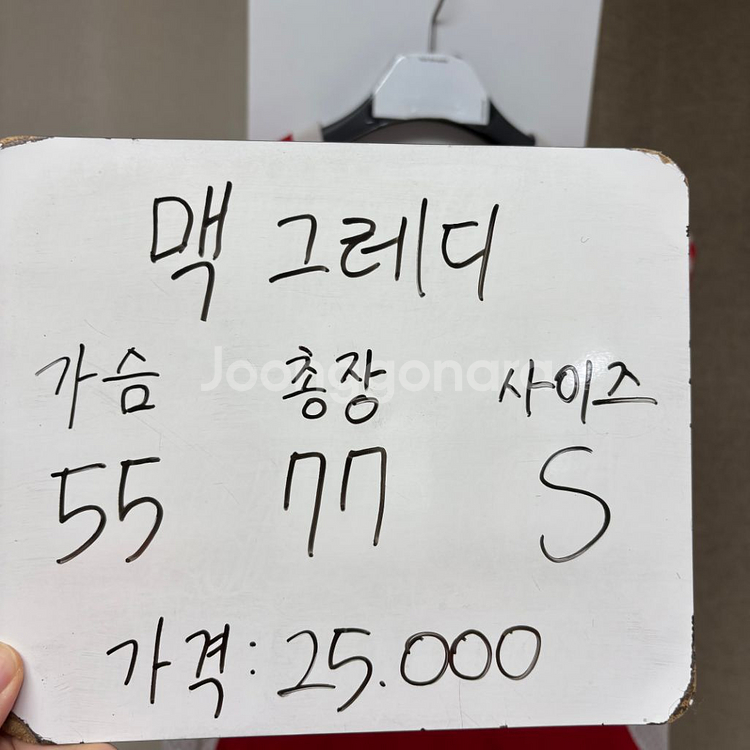 맥 그레디
가슴 총장 사이즈
Joonggonara
55 77 S
가격: 25.000